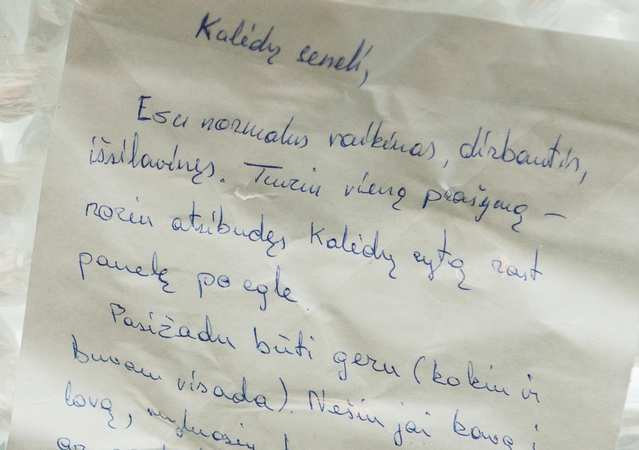 Kalėdų seneli,
Esu normalus vaikinas, dirbantis,
išsilavinęs. Turiu vieną prašymą –
noriu atsibudęs Kalėdų rytą rast
panelę po egle.
Pasižadu būti geru (kokiu ir
buvau visada). Nešiu jai kavą į
lovą,